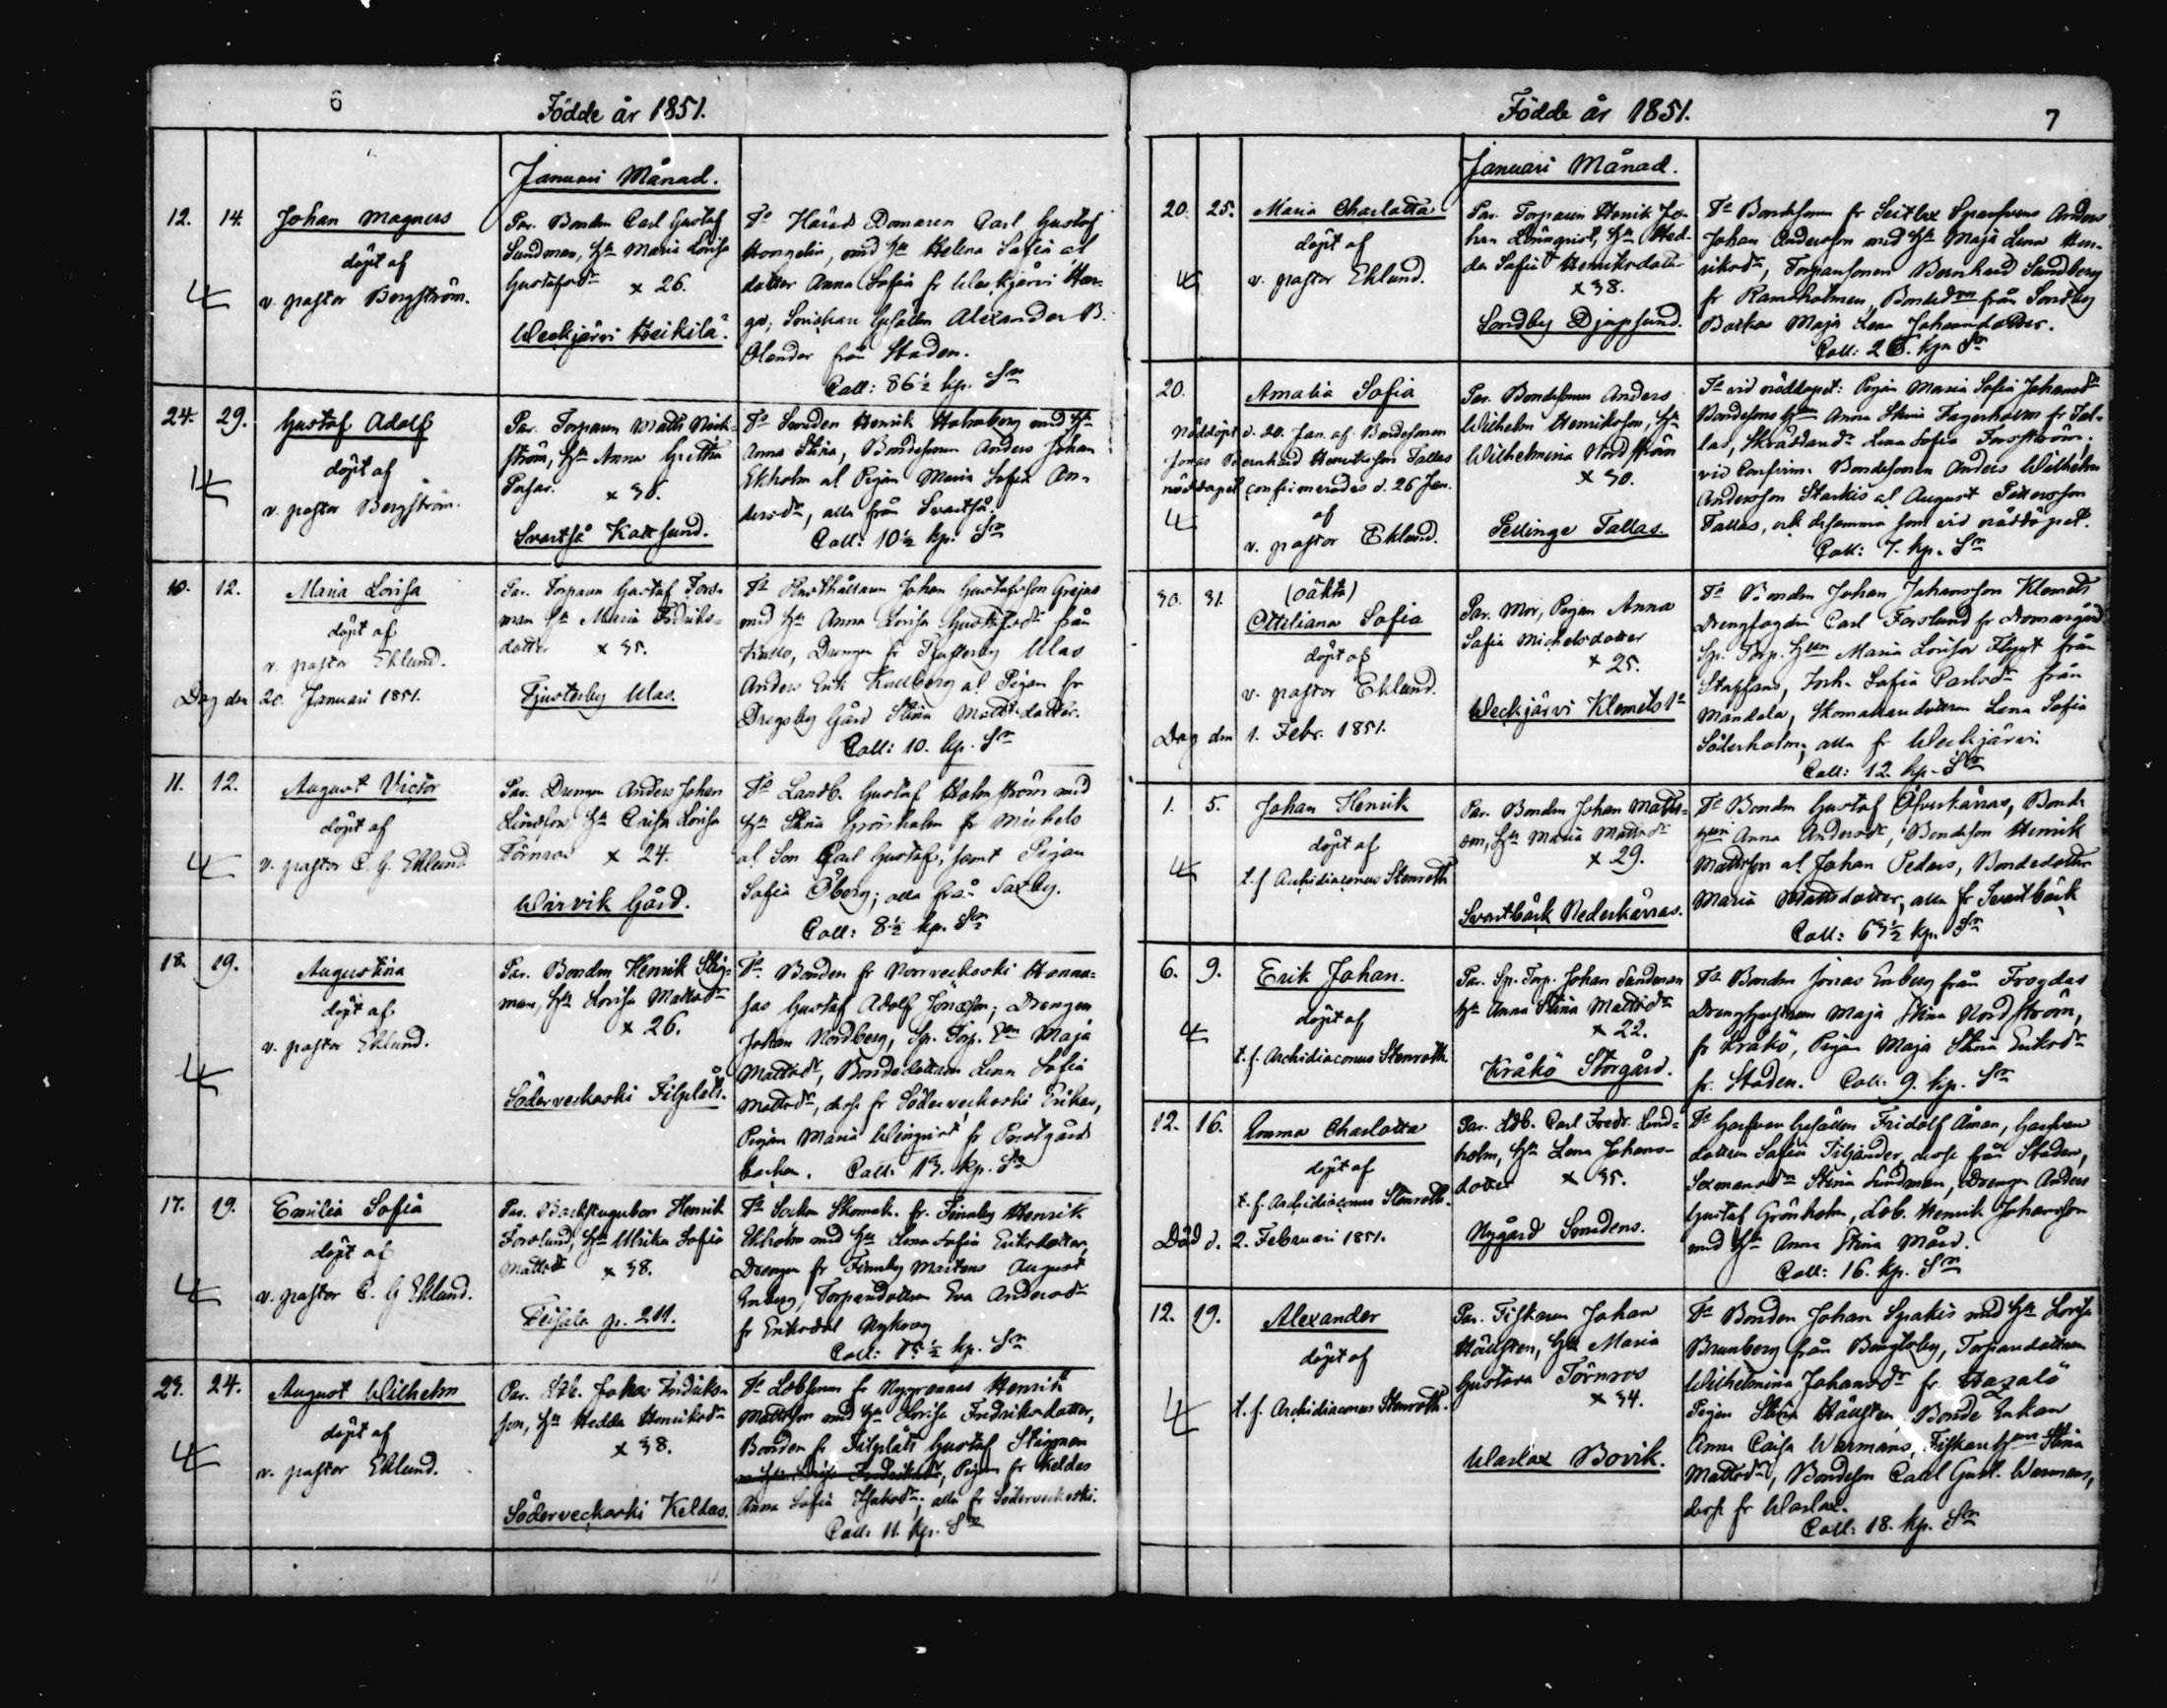 6
Födde år 1851.
Januari Månad.
12. 14. Johan Magnus
döpt af
v. pastor Bergström.
Par. Bonden Carl Gustaf
Sundman, Hu Maria Lovisa
Gustafsdr x 26.
Weckjärvi Heikilä.
Fr Härads Domaren Carl Gustaf
med Hu Helena Sofia al
dotter Anna Sofia fr Weckjärvi
Gesällen Alexander B.
Olander från Staden.
Coll: 86½ kp. Sr
24. 29. Gustaf Adolf
döpt af
v. pastor Bergström.
Par. Torparen Matts Nick-
ström, Hu Anna Gretha
x 36.
Svartså Kattsund.
Fr Smeden Henrik Holmberg med Hu
Anna Stina, Bondesonen Anders Johan
Ekholm al Pigan Maria Sofia An-
dersdr, alla från Svartså.
Coll: 10½ kp. Sr
10. 12. Maria Lovisa
döpt af
v. pastor Eklund.
Dog den 20. Januari 1851.
Par. Torparen Gustaf Fors-
man Hu Maria Fredriks-
dotter x 35.
Tjusterby Ulas.
Fr Rusthållaren Johan Gustafsson Grejas
med Hu Anna Lovisa Gustafsdr från
Kullo, Drengen fr Tjusterby Ulas
Anders Erik Kullberg al Pigan fr
Drägsby Gård Stina Mattsdotter.
Coll: 10. kp. Sr
11. 12. August Victor
döpt af
v. pastor C. G. Eklund
Par. Drengen Anders Johan
Lindfors Hu Caisa Lovisa
Törnroos x 24.
Wirvik Gård.
Fr Landb. Gustaf Holmström med
Hu Stina Grönholm fr Michels
al Son Carl Gustaf, samt Pigan
Sofia Öberg; alla från Saxby.
Coll: 8½ kp. Sr
18. 19. Augustina
döpt af
v. pastor Eklund.
Par. Bonden Henrik Stig-
man, Hu Lovisa Mattsdr
x 26.
Söderveckoski Filpläts.
Fr Bonden fr Norrveckoski Hanna-
sas Gustaf Adolf Jönsson; Drengen
Johan Nordberg, Sp. Torp. Maja
Mattsdr, Bondedottern Lena Sofia
Mattsdr, desse fr Söderveckoski Erikas,
Pigan Maria Winqvist fr Prostgårds
backen. Coll: 13. kp. Sr
17. 19. Emilia Sofia
döpt af
v. pastor C. G Eklund.
Par. Backstugubon Henrik
Forslund, Hu Ulrika Sofia
Mattsdr x 38.
p. 211.
Fr Socken Skomak. fr. Finnby Henrik
Ekholm med Hu Lena Sofia Eriksdotter,
Drengen fr Finnby Martens August
Enberg, Torparedottern Eva Andersdr
fr Eriksdal Nykrog
Coll: 15½ kp. Sr
23. 24. August Wilhelm
döpt af
v. pastor Eklund.
Par. Johan Fredriks-
son, Hu Hedda Henriksdr
x 38.
Söderveckoski Keldas.
Fr Ldbsonen fr Nygrannas Henrik
Mattsson med Hu Lovisa Fredriksdotter,
Bonden fr Filpläts Gustaf Stigman
Pigan fr Keldas
Anna Sofia Isaksdr, alla fr Söderveckoski.
Coll: 11. kp. Sr
Födde år 1851.
7
Januari Månad.
20. 25. Maria Charlotta
döpt af
v. pastor Eklund.
Par. Torparen Henrik Jo-
han Lönnqvist, Hu Hed-
da Sofia Henriksdotter
x 38.
Sondby Djupsund.
Fr Bondesonen fr Seitlax Anders
Johan Andersson med Hu Maja Lena Hen-
riksdr, Torparesonen Bernhard Sundberg
fr Ramsholmen, från Sondby
Backas Maja Lena Johansdotter.
Coll: 26. kpr Sr
20. Amalia Sofia
Nöddöpt d. 20. Jan. af Bondesonen
Jonas Bernhard Henriksson Tallas
nöddopet confirmerades d. 26 Jan.
af
v. pastor Eklund.
Par. Bondesonen Anders
Wilhelm Henriksson, Hu
Wilhelmina Nordström
x 30.
Pellinge Tallas.
Fr vid nöddopet: Pigan Maria Sofia Johansdr
Bondesons Hun Anna Stina Fagerholm fr Tal-
las, Lena Sofia Forsström;
vid Confirm. Bondesonen Anders Wilhelm
Andersson Starkis al August Pettersson
Tallas, och desamma som vid nöddopet.
Coll: 7. kp. Sr
30. 31. (oäkta)
Ottiliana Sofia
döpt af
v. pastor Eklund.
Dog den 1. Febr. 1851.
Par. Mor, Pigan Anna
Sofia Michelsdotter
x 25.
Weckjärvi Klemets
Fr Bonden Johan Johansson Klemets
Drengfogden Carl Forslund fr Domargård
Sp. Torp. Hun Maria Lovisa Flygt från
Staffans, Sofia Carlsdr från
Mandala, Skomakaredottern Lena Sofia
Söderholm, alla fr Weckjärvi.
Coll: 12. kp. Sr
1. 5. Johan Henrik
döpt af
t.f Archidiaconus Stenroth
Par. Bonden Johan Matts-
son, Hu Maria Mattsdr
x 29.
Svartbäck Nederkärras.
Fr Bonden Gustaf Öfverkärras, Bonde
Hun Anna Andersdr, Bondeson Henrik
Mattsson al Johan Peders, Bondedotter
Maria Mattsdotter, alla fr Svartbäck
Coll: 63½ kp. Sr
6. 9. Erik Johan.
döpt af
t.f. Archidiaconus Stenroth
Par. Sp. Torp. Johan Sandman
Hu Anna Stina Mattsdr
x 22.
Kråkö Storgård.
Fr Bonden Jonas Enberg från Frogdas
Drenghustrun Maja Stina Nordström,
fr Kråkö, Pigan Maja Stina Eriksdr
fr. Staden. Coll. 9. kp. Sr
12. 16. Emma Charlotta
döpt af
t.f. Archidiaconus Stenroth.
Död d. 2. Februari 1851.
Par. Ldb. Carl Fredr. Lind-
holm, Hu Lena Johans-
dotter x 35.
Nygård Smedens.
Fr Garfvare Gesällen Fridolf Åman, Garfvare
dottern Sofia Tiljander, desse från Staden,
Sexmansdr Stina Sundman, Drengen Anders
Gustaf Grönholm, Ldb. Henrik Johansson
med Hu Anna Stina Mård.
Coll: 16. kp. Sr
12. 19. Alexander
döpt af
t.f. Archidiaconus Stenroth.
Par. Fiskaren Johan
Hällsten, Hu Maria
Gustava Törnroos
x 34.
Warlax Bovik.
Fr Bonden Johan Spakis med Hu Lovisa
Brunberg från Bengtsby, Torparedottern
Wilhelmina Johansdr fr
Pigan Stina Hällsten, Bonde Enkan
Anna Caisa Warmans, Stina
Mattsdr, Bondeson Carl Gust. Warmans,
desse fr Warlax.
Coll: 18. kp. Sr